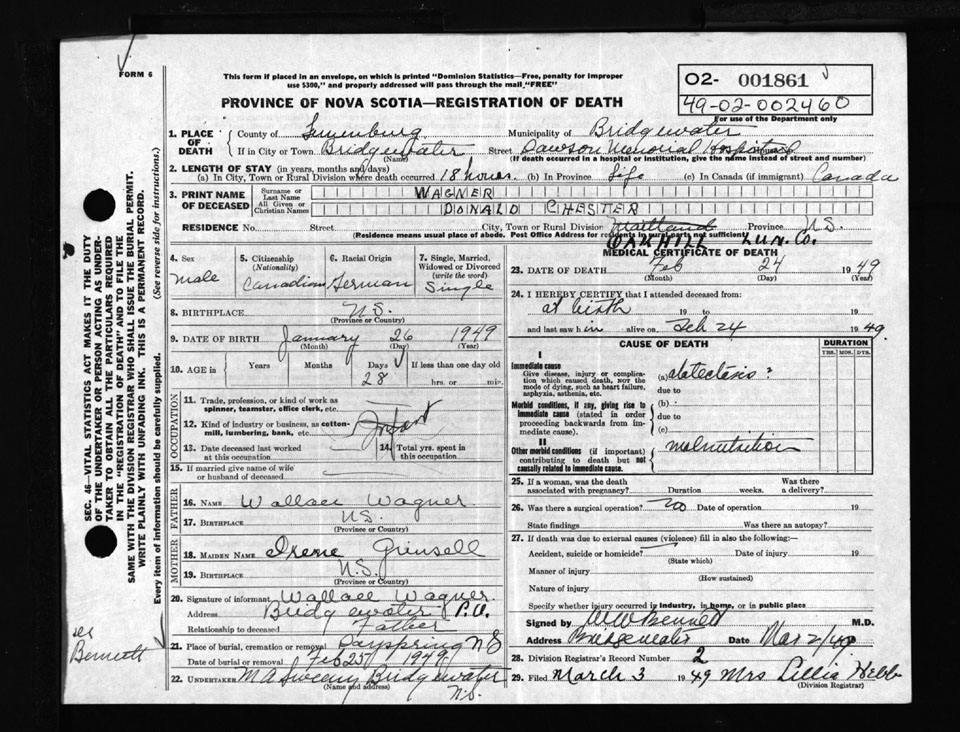 FORM 6
This form if placed in an envelope, on which is printed "Dominion Statistics—Free, penalty for improper
use $300," and properly addressed will pass through the mail "FREE"
PROVINCE OF NOVA SCOTIA—REGISTRATION OF DEATH
O2- 001861
49-02-002460
For use of the Department only
1. PLACE OF DEATH
County of Lunenburg Municipality of Bridgewater
If in City or Town Bridgewater Street Dawson Memorial Hospital
(Name) (If death occurred in a hospital or institution, give the name instead of street and number)
2. LENGTH OF STAY (in years, months and/days)
(a) In City, Town or Rural Division where death occurred 18 hours. (b) In Province Life (c) In Canada (if immigrant) Canada
3. PRINT NAME OF DECEASED
Surname or Last Name WAGNER
All Given or Christian Names DONALD CHESTER
RESIDENCE No. Street City, Town or Rural Division Maitland Province N.S.
(Residence means usual place of abode. Post Office Address for residents in rural parts not sufficient)
OAKHILL LUN. CO.
4. Sex
male
5. Citizenship (Nationality)
Canadian
6. Racial Origin
German
7. Single, Married, Widowed or Divorced (write the word)
Single
8. BIRTHPLACE N.S.
(Province or Country)
9. DATE OF BIRTH January 26 1949
(Month) (Day) (Year)
10. AGE in Years Months Days If less than one day old
28 hrs. or min.
OCCUPATION
11. Trade, profession, or kind of work as spinner, teamster, office clerk, etc.
12. Kind of industry or business, as cotton-mill, lumbering, bank, etc.
Infant
13. Date deceased last worked at this occupation
14. Total yrs. spent in this occupation
15. If married give name of wife or husband of deceased
FATHER
16. NAME Wallace Wagner
17. BIRTHPLACE N.S.
(Province or Country)
MOTHER
18. MAIDEN NAME Irene
19. BIRTHPLACE N.S.
(Province or Country)
20. Signature of informant Wallace Wagner
Address Bridgewater P.O.
Relationship to deceased Father
21. Place of burial, cremation or removal Dayspring NS
Date of burial or removal Feb 25/ 1949
22. UNDERTAKER M A Sweeny Bridgewater
(Name and address) N.S.
MEDICAL CERTIFICATE OF DEATH
23. DATE OF DEATH Feb 24 1949
(Month) (Day) (Year)
24. I HEREBY CERTIFY that I attended deceased from:
at birth 19 to 19
and last saw him alive on Feb 24 1949
CAUSE OF DEATH DURATION
YRS. MOS. DYS.
I
Immediate cause
Give disease, injury or complication which caused death, not the mode of dying, such as heart failure, asphyxia, asthenia, etc.
(a) atelectasis?
due to
Morbid conditions, if any, giving rise to immediate cause (stated in order proceeding backwards from immediate cause).
(b)
due to
(c)
II
Other morbid conditions (if important) contributing to death but not causally related to immediate cause.
malnutrition
25. If a woman, was the death associated with pregnancy? Duration weeks. Was there a delivery?
26. Was there a surgical operation? no Date of operation 19
State findings Was there an autopsy?
27. If death was due to external causes (violence) fill in also the following:—
Accident, suicide or homicide? Date of injury 19
(State which)
Manner of injury
(How sustained)
Nature of injury
Specify whether injury occurred in industry, in home, or in public place
Signed by Bennett M.D.
Address Bridgewater Date Mar 2/49
28. Division Registrar's Record Number 2
29. Filed March 3 1949 Mrs Lillia Hebb
(Division Registrar)
SEC. 46—VITAL STATISTICS ACT MAKES IT THE DUTY
OF THE UNDERTAKER OR PERSON ACTING AS UNDER-
TAKER TO OBTAIN ALL THE PARTICULARS REQUIRED
IN THE "REGISTRATION OF DEATH" AND TO FILE THE
SAME WITH THE DIVISION REGISTRAR WHO SHALL ISSUE THE BURIAL PERMIT.
WRITE PLAINLY WITH UNFADING INK. THIS IS A PERMANENT RECORD.
Every item of information should be carefully supplied. (See reverse side for instructions.)
Bennett